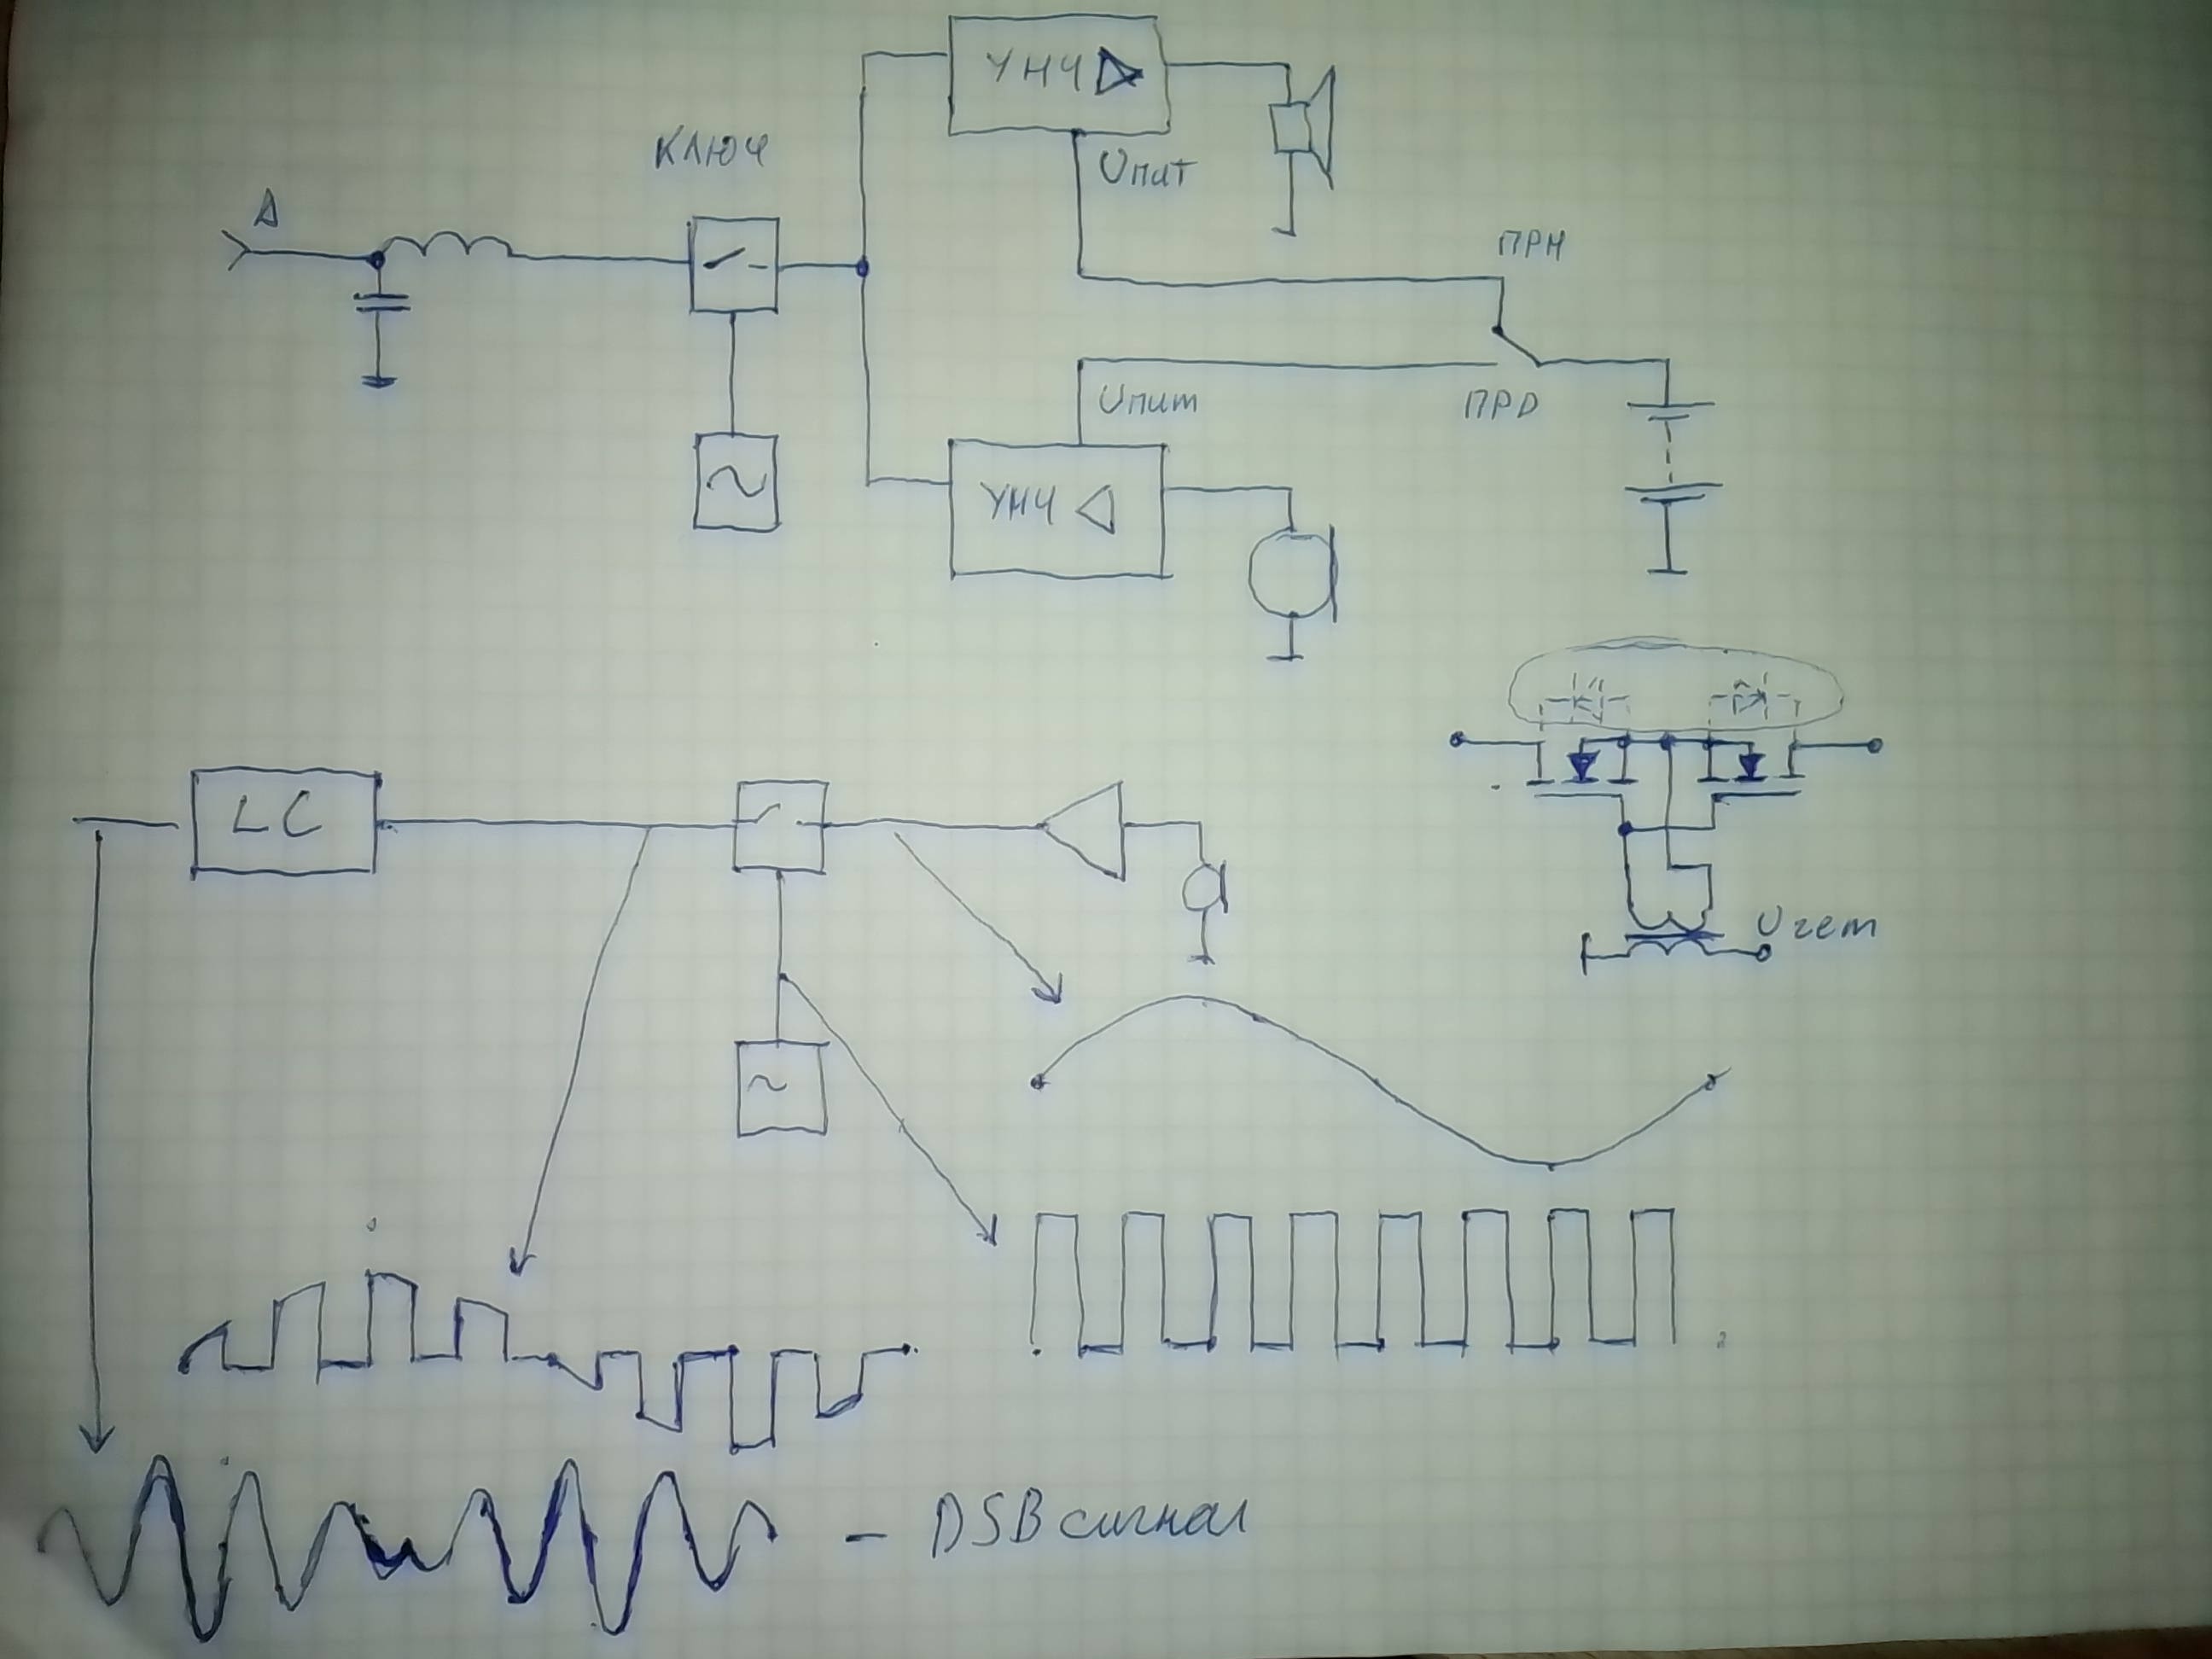 УНЧ
КЛЮЧ
Uпит
А
ПРМ
Uпит
ПРД
УНЧ
LC
Uгет
- DSB сигнал